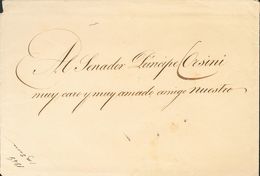 Al Senador Principe Orsini
muy caro y muy amado amigo nuestro
1845